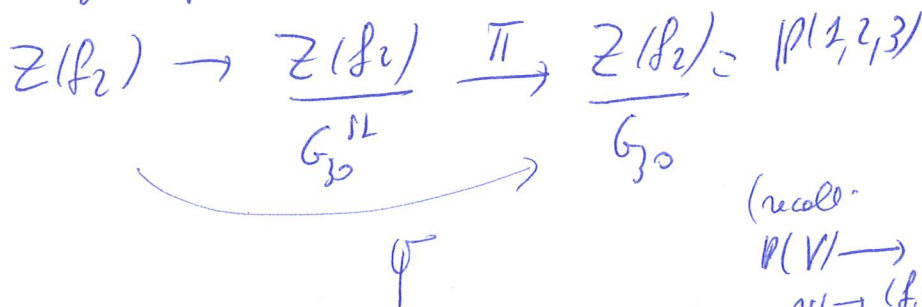 Z(f₂) → Z(f₂)/G₃₀^SL —π→ Z(f₂)/G₃₀ = P(1,2,3)
φ
(recall.
P(V) →
(f,